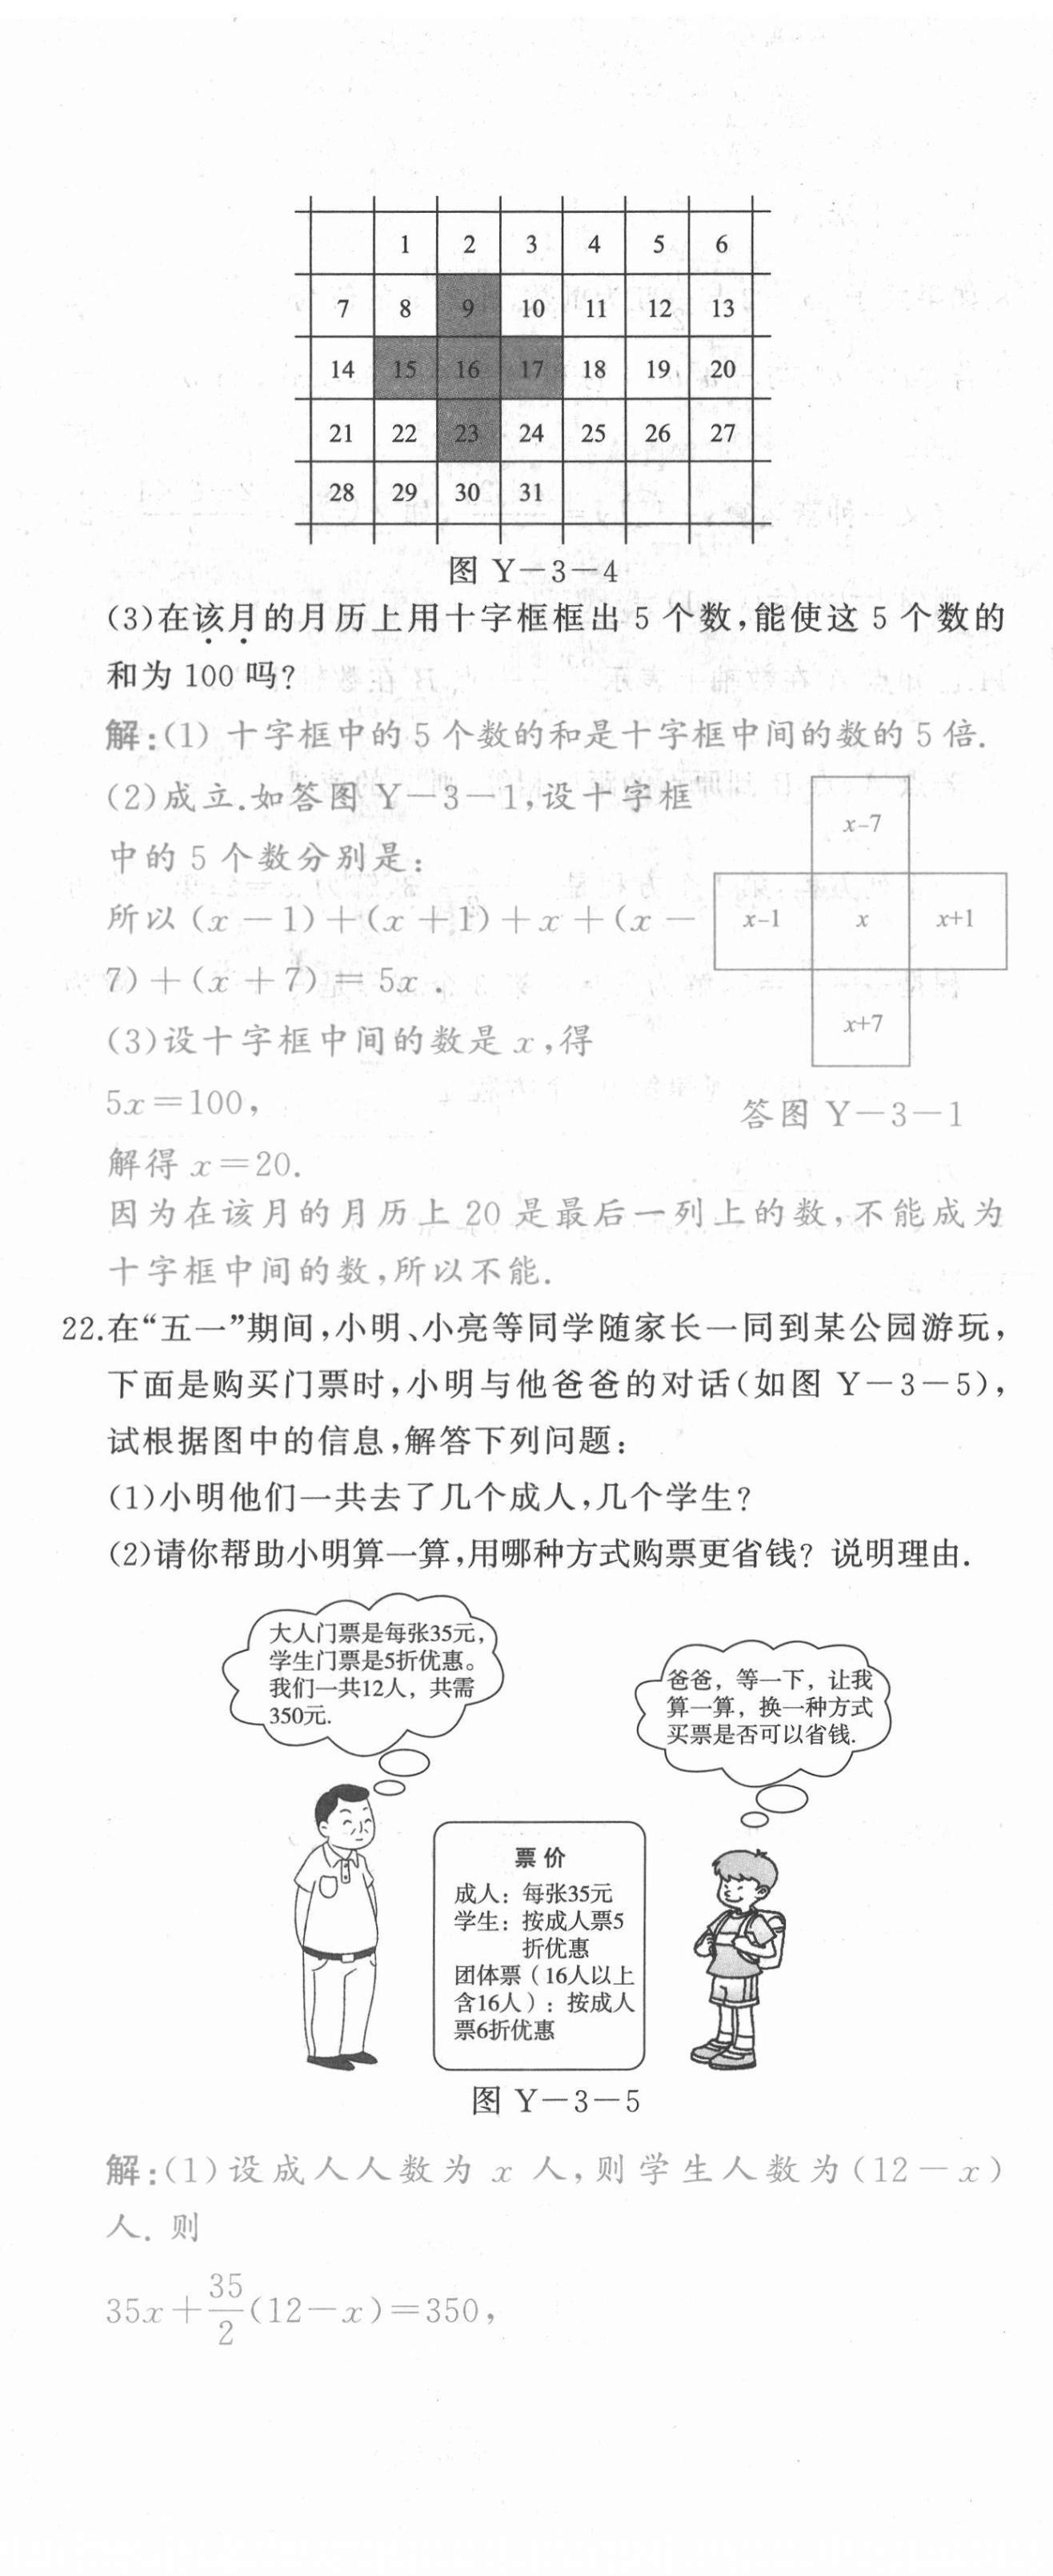 1 2 3 4 5 6
7 8 9 10 11 12 13
14 15 16 17 18 19 20
21 22 23 24 25 26 27
28 29 30 31
图 Y－3－4
(3)在该月的月历上用十字框框出 5 个数,能使这 5 个数的
和为 100 吗?
解:(1) 十字框中的 5 个数的和是十字框中间的数的 5 倍.
(2)成立.如答图 Y－3－1,设十字框
中的 5 个数分别是:
所以(x－1)＋(x＋1)＋x＋(x－
7)＋(x＋7)＝5x.
x–7
x–1 x x+1
x+7
答图 Y－3－1
(3)设十字框中间的数是 x,得
5x＝100,
解得 x＝20.
因为在该月的月历上 20 是最后一列上的数,不能成为
十字框中间的数,所以不能.
22.在“五一”期间,小明、小亮等同学随家长一同到某公园游玩,
下面是购买门票时,小明与他爸爸的对话(如图 Y－3－5),
试根据图中的信息,解答下列问题:
(1)小明他们一共去了几个成人,几个学生?
(2)请你帮助小明算一算,用哪种方式购票更省钱? 说明理由.
大人门票是每张35元,
学生门票是5折优惠。
我们一共12人，共需
350元.
爸爸，等一下，让我
算一算，换一种方式
买票是否可以省钱.
票 价
成人：每张35元
学生：按成人票5
折优惠
团体票（16人以上
含16人）：按成人
票6折优惠
图 Y－3－5
解:(1)设成人人数为 x 人,则学生人数为(12－x)
人. 则
35x＋35/2(12－x)＝350,